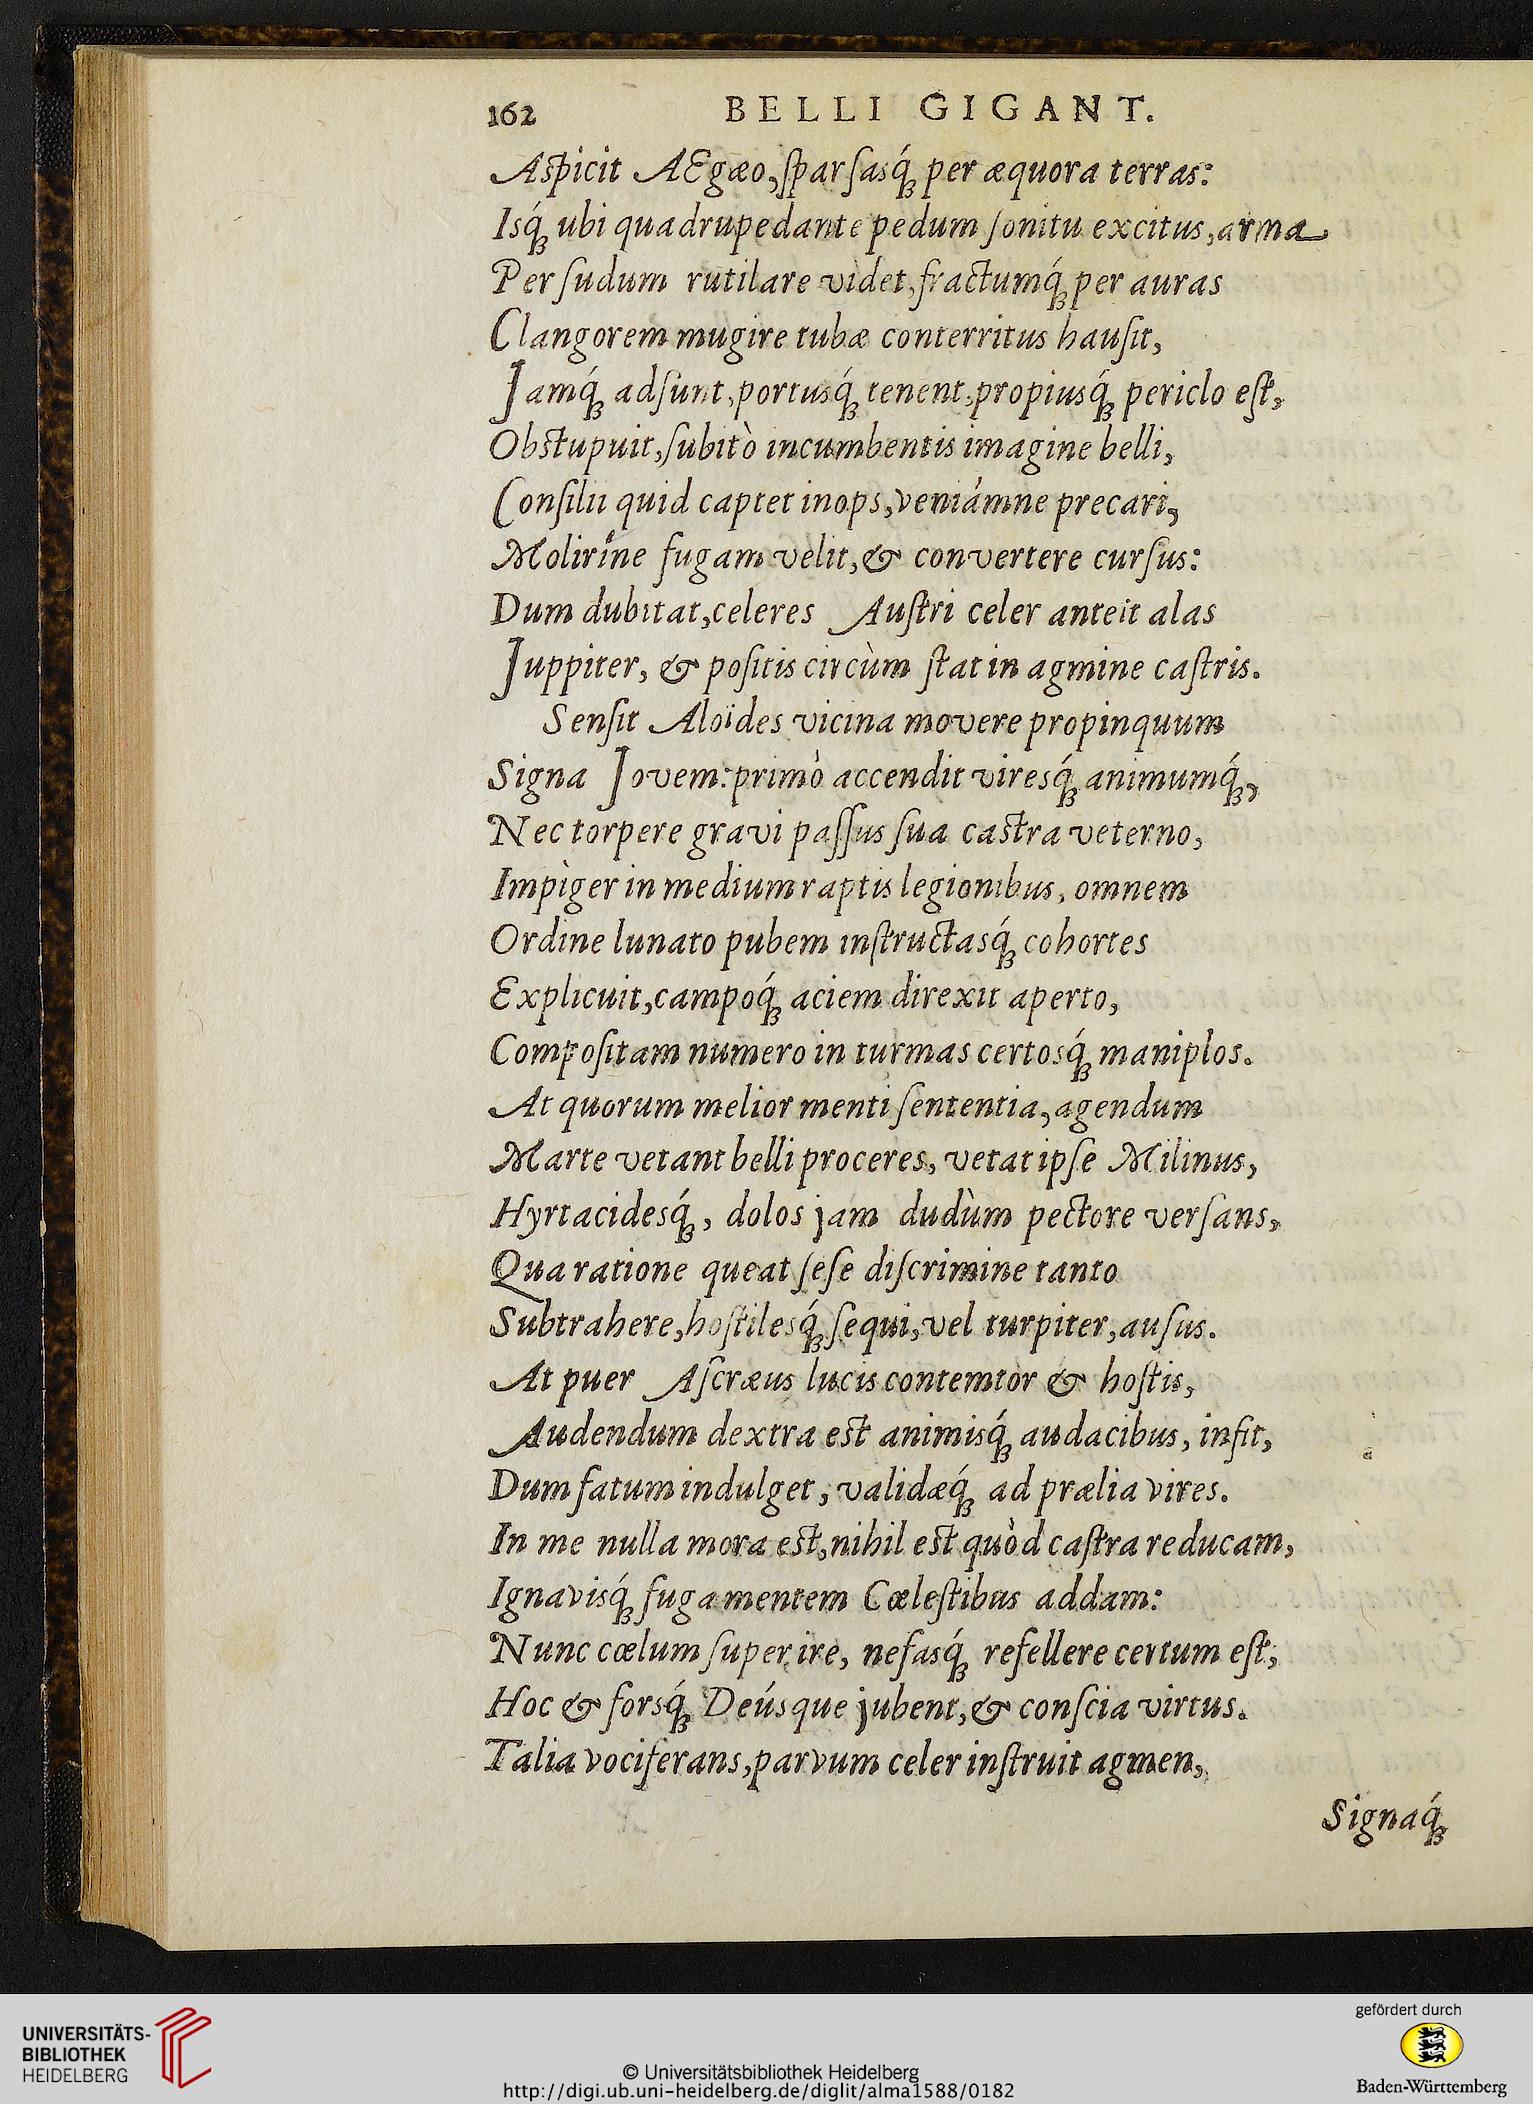 162 BELLI GIGANT.
Aspicit AEgæo, ſparſasq́; per æquora terras:
Isq́; ubi quadrupedante pedum ſonitu excitus, arma
Per ſudum rutilare videt, fractumq́; per auras
Clangorem mugire tubæ conterritus hauſit,
Jamq́; adſunt, portusq́; tenent, propiusq́; periclo eſt,
Obstupuit, ſubitò incumbentis imagine belli,
Conſilii quid captet inops, veniámne precari,
Moliríne fugam velit, & convertere curſus:
Dum dubitat, celeres Auſtri celer anteit alas
Juppiter, & poſitis circùm ſtat in agmine caſtris.
Senſit Aloïdes vicina movere propinquum
Signa Jovem: primò accendit viresq́; animumq́;,
Nec torpere gravi paſſus ſua castra veterno,
Impìger in medium raptis legionibus, omnem
Ordine lunato pubem inſtructasq́; cohortes
Explicuit, campoq́; aciem direxit aperto,
Compoſitam numero in turmas certosq́; maniplos.
At quorum melior menti ſententia, agendum
Marte vetant belli proceres, vetat ipſe Milinus,
Hyrtacidesq́;, dolos jam dudùm pectore verſans,
Qua ratione queat ſeſe diſcrimine tanto
Subtrahere, hoſtilesq́; ſequi, vel turpiter, auſus.
At puer Aſcræus lucis contemtor & hoſtis,
Audendum dextra est animisq́; audacibus, infit,
Dum fatum indulget, validæq́; ad prælia vires.
In me nulla mora est, nihil est quòd caſtra reducam,
Ignavisq́; fuga mentem Cœleſtibus addam:
Nunc cœlum ſuper ire, nefasq́; refellere certum eſt;
Hoc & forsq́; Deúsque jubent, & conſcia virtus.
Talia vociferans, parvum celer inſtruit agmen,
Signaq́;
UNIVERSITÄTS-
BIBLIOTHEK
HEIDELBERG
© Universitätsbibliothek Heidelberg
http://digi.ub.uni-heidelberg.de/diglit/alma1588/0182
gefördert durch
Baden-Württemberg